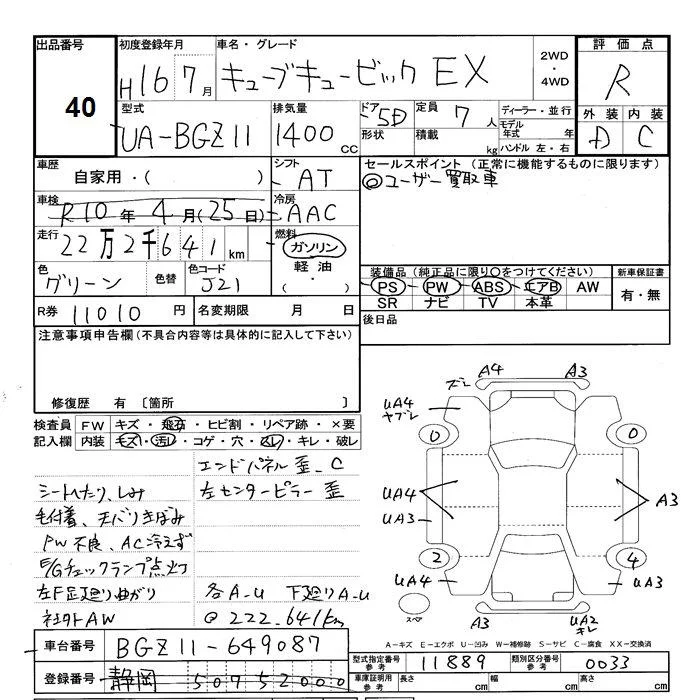 出品番号 40
初度登録年月 H16 7月
車名・グレード キューブキュービック EX
2WD ・ 4WD
評価点 R
外装 D 内装 C
型式 UA-BGZ11
排気量 1400 cc
ドア 5D 形状
定員 7人 積載 kg
ディーラー・並行
モデル年式 年
ハンドル 左・右
車歴 自家用・( )
シフト AT
セールスポイント (正常に機能するものに限ります)
◎ユーザー買取車
車検 R10年 4月(25日)
冷房 AAC
走行 22万2千641km
燃料 ガソリン
軽油
( ・ )
色 グリーン 色替 色コード J21
装備品 (純正品に限り○をつけてください) 新車保証書
PS PW ABS エアB AW 有・無
SR ナビ TV 本革
R券 11010 円 名変期限 月 日
後日品
注意事項申告欄 (不具合内容等は具体的に記入して下さい)
修復歴 有 〔箇所 〕
検査員記入欄 FW キズ・飛石・ヒビ割・リペア跡・×要
内装 キズ・汚レ・コゲ・穴・スレ・キレ・破レ
エンドパネル歪、C
シートへたり、しみ 左センターピラー歪
毛付着、天バリきばみ
PW不良、AC冷えず
E/Gチェックランプ点灯
左F足廻り曲がり 各A-U 下廻りA-U
社外AW @222,641km
A4 A3
ズレ
UA4
ヤブレ
0 0
UA4
UA3
A3
2 4
UA4 UA3
スペア
A3 UA2
キレ
A-キズ E-エクボ U-凹み W-補修跡 S-サビ C-腐食 XX-交換済
車台番号 BGZ11-649087
型式指定番号参考 11889 類別区分番号参考 0033
登録番号 静岡 507 52000
車庫証明用参考 長さ cm 幅 cm 高さ cm